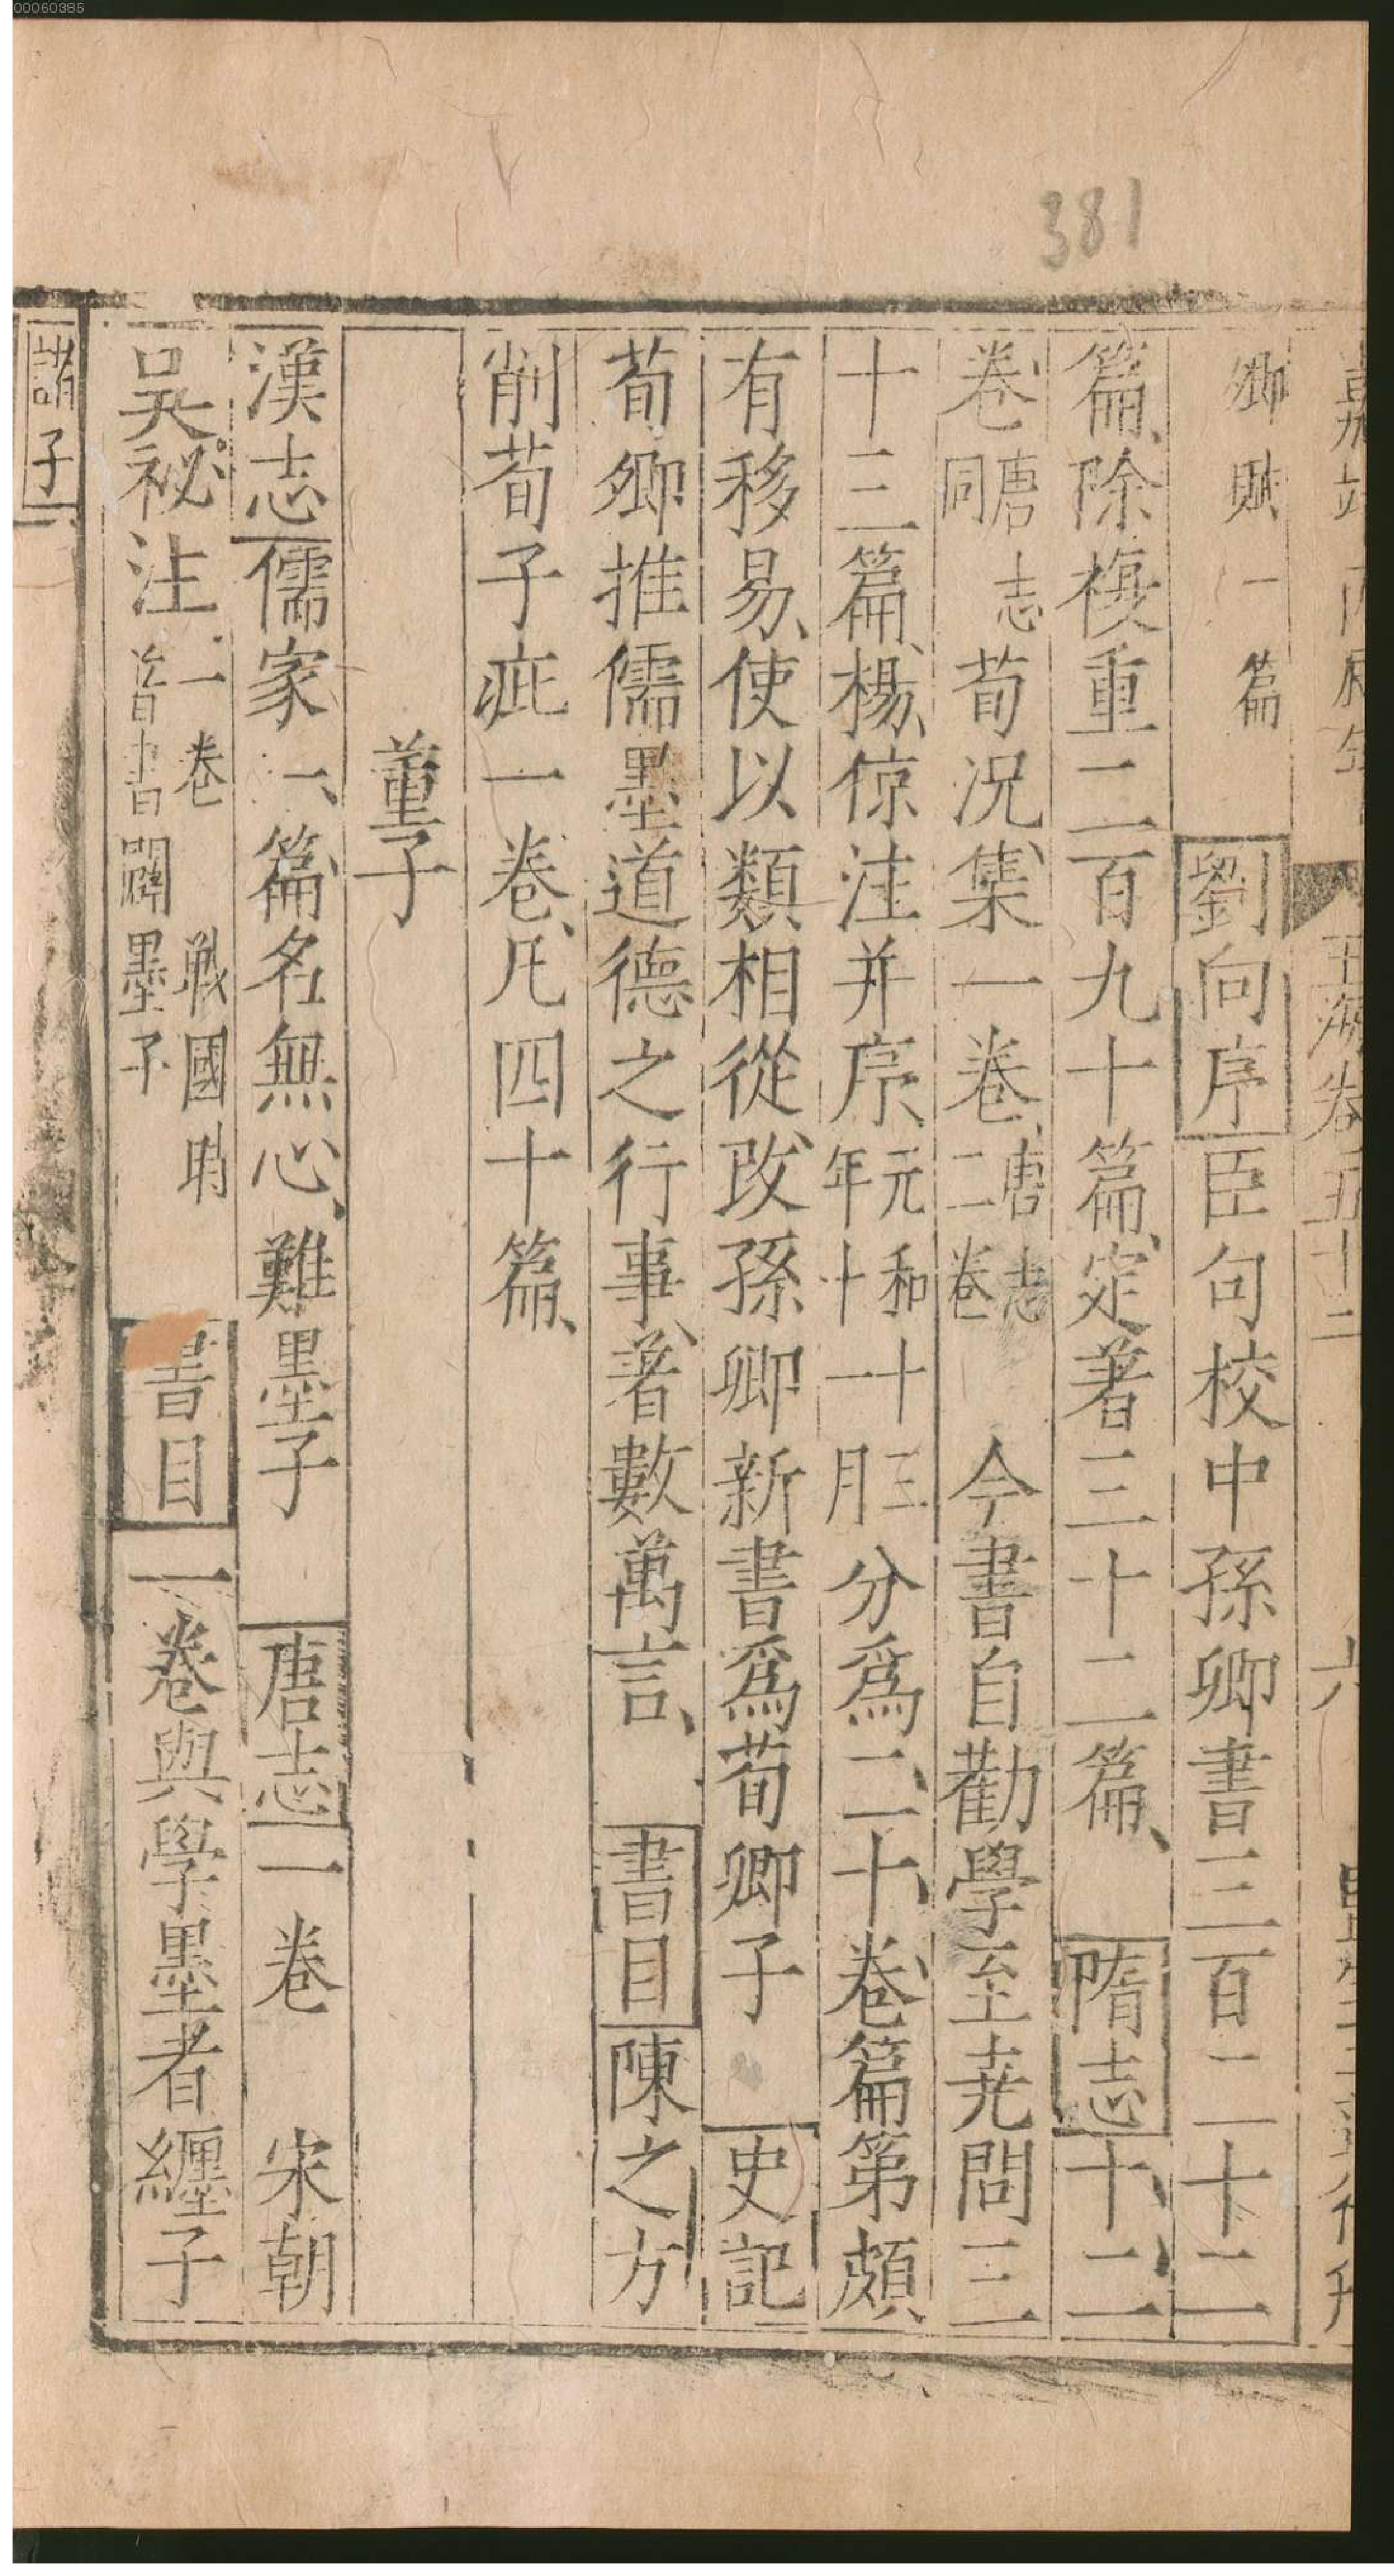 00060385
381
玉海卷五十二
六
卿賦一篇　劉向序臣向校中孫卿書三百二十二
篇除複重二百九十篇定著三十二篇　隋志十二
卷唐志同荀況集一卷唐志二卷　今書自勸學至堯問三
十三篇楊倞注并序元和十三年十一月分為二十卷篇第頗
有移易使以類相從改孫卿新書爲荀卿子　史記
荀卿推儒墨道德之行事著數萬言　書目陳之方
削荀子疵一卷凡四十篇
董子
漢志儒家一篇名無心難墨子　唐志一卷　宋朝
吳祕注一卷　戰國時著書闢墨子　書目一卷與學墨者纏子
諸子